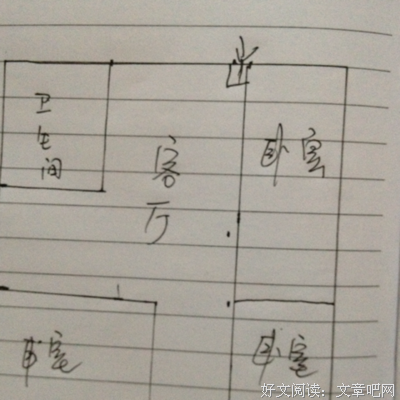 卫生间
客厅
卧室
卧室
卧室
好文阅读：文章吧网